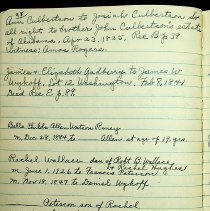 38
Ann Culbertson to Josiah Culbertson Sr.
all right to brother John Culbertson's estate
of Alabama, Apr 23, 1835, Rec B p 39
Witness; Amos Rogers.
James & Elizabeth Gadberry to James W
Wykoff, Lot 12 Washington, Feb 8, 1841
Deed Rec E p. 89
Belle Childs Allen Watson Pensey
m. Dec 28, 1884 to Allen at age of 19 yrs.
Rachel Wallace dau of Robt B Wallace
& Rachel Hughes
m. June 1, 1826 to Francis Peterson
m. Nov 18, 1847 to Daniel Wykoff
Peterson son of Rachel